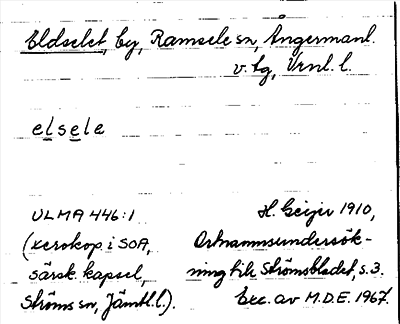 Eldselet, by, Ramsele sn, Ångermanl.
v. lg, Vrnl. l.
elsele
ULMA 446:1 H. Geijer 1910,
(xerokop. i SOA, Ortnamnsundersök-
särsk. kapsel, ning till Strömsbladet, s. 3.
Ströms sn, Jämtl. l.). Exc. av M.D.E. 1967.